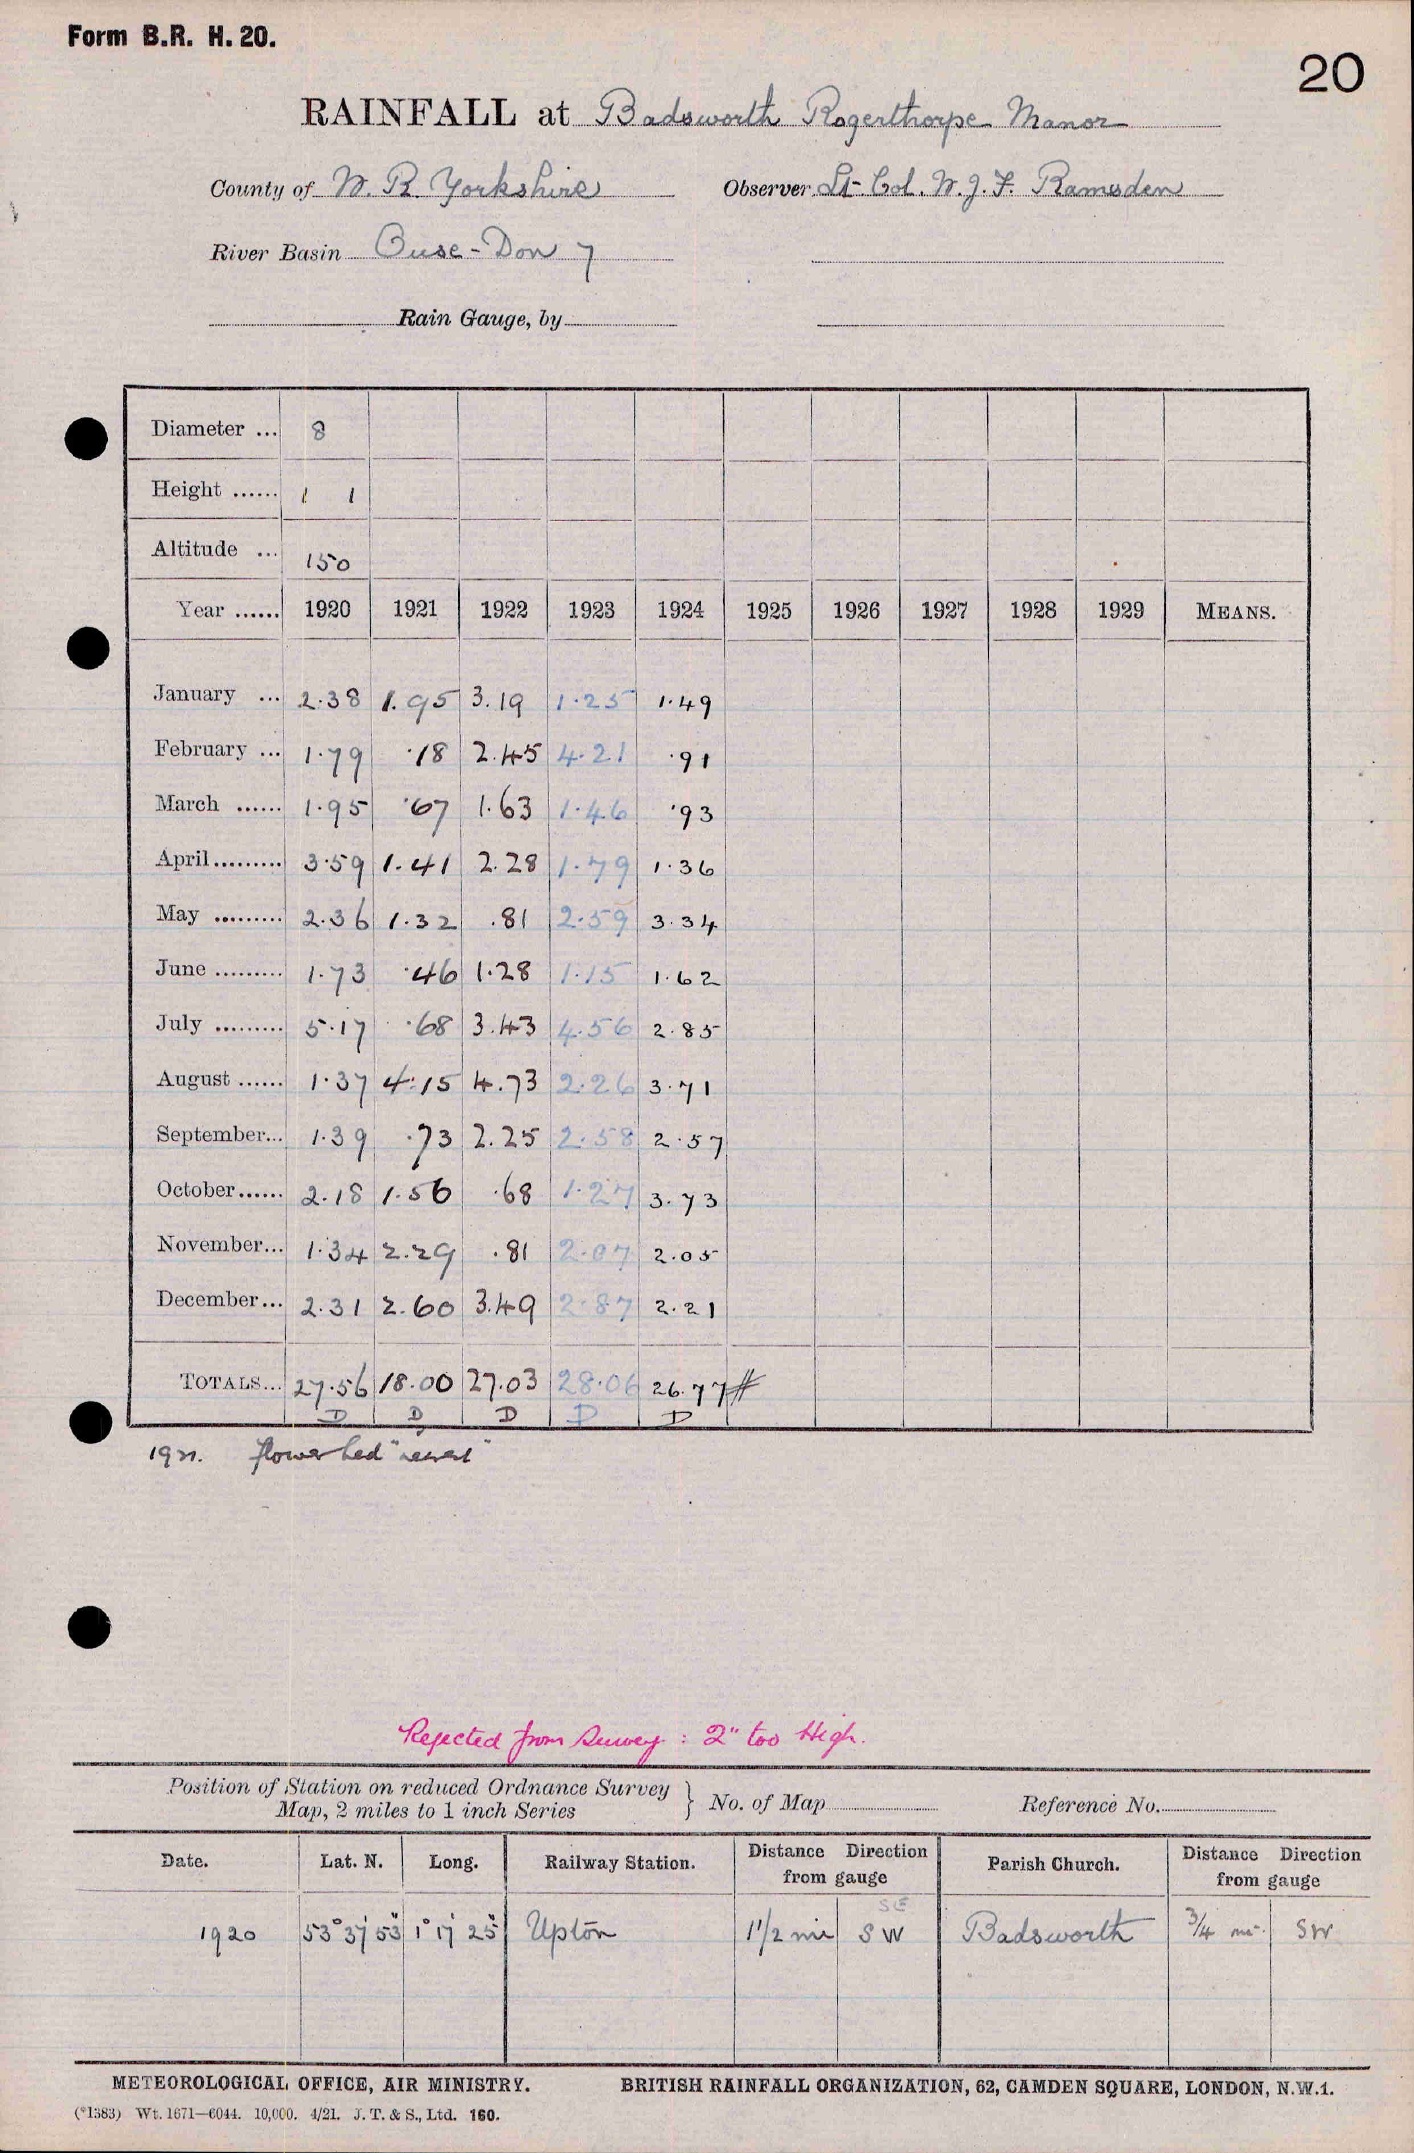 Form B.R. H. 20.
20
RAINFALL at Badsworth Rogerthorpe Manor
County of W. R. Yorkshire Observer Lt-Col. W. J. F. Ramsden
River Basin Ouse-Don 7
Rain Gauge, by
Diameter ... 8
Height ...... 1 1
Altitude ... 150
Year ...... 1920 1921 1922 1923 1924 1925 1926 1927 1928 1929 MEANS.
January ... 2.38 1.95 3.19 1.25 1.49
February ... 1.79 .18 2.45 4.21 .91
March ...... 1.95 .67 1.63 1.46 .93
April ......... 3.59 1.41 2.28 1.79 1.36
May ......... 2.36 1.32 .81 2.59 3.34
June ......... 1.73 .46 1.28 1.15 1.62
July ......... 5.17 .68 3.43 4.56 2.85
August ...... 1.37 4.15 4.73 2.26 3.71
September... 1.39 .73 2.25 2.58 2.57
October...... 2.18 1.56 .68 1.27 3.73
November... 1.34 2.29 .81 2.07 2.05
December... 2.31 2.60 3.49 2.87 2.21
TOTALS... 27.56 18.00 27.03 28.06 26.77 #
D D D D D
flower bed
Rejected from Survey : 2" too High.
Position of Station on reduced Ordnance Survey
Map, 2 miles to 1 inch Series } No. of Map Reference No.
Date. Lat. N. Long. Railway Station. Distance Direction from gauge Parish Church. Distance Direction from gauge
SE
1920 53° 37' 53" 1° 17' 25" Upton 1 1/2 mi SW Badsworth 3/4 mi. SW
METEOROLOGICAL OFFICE, AIR MINISTRY. BRITISH RAINFALL ORGANIZATION, 62, CAMDEN SQUARE, LONDON, N.W.1.
(*1383) Wt. 1671—6044. 10,000. 4/21. J. T. & S., Ltd. 160.